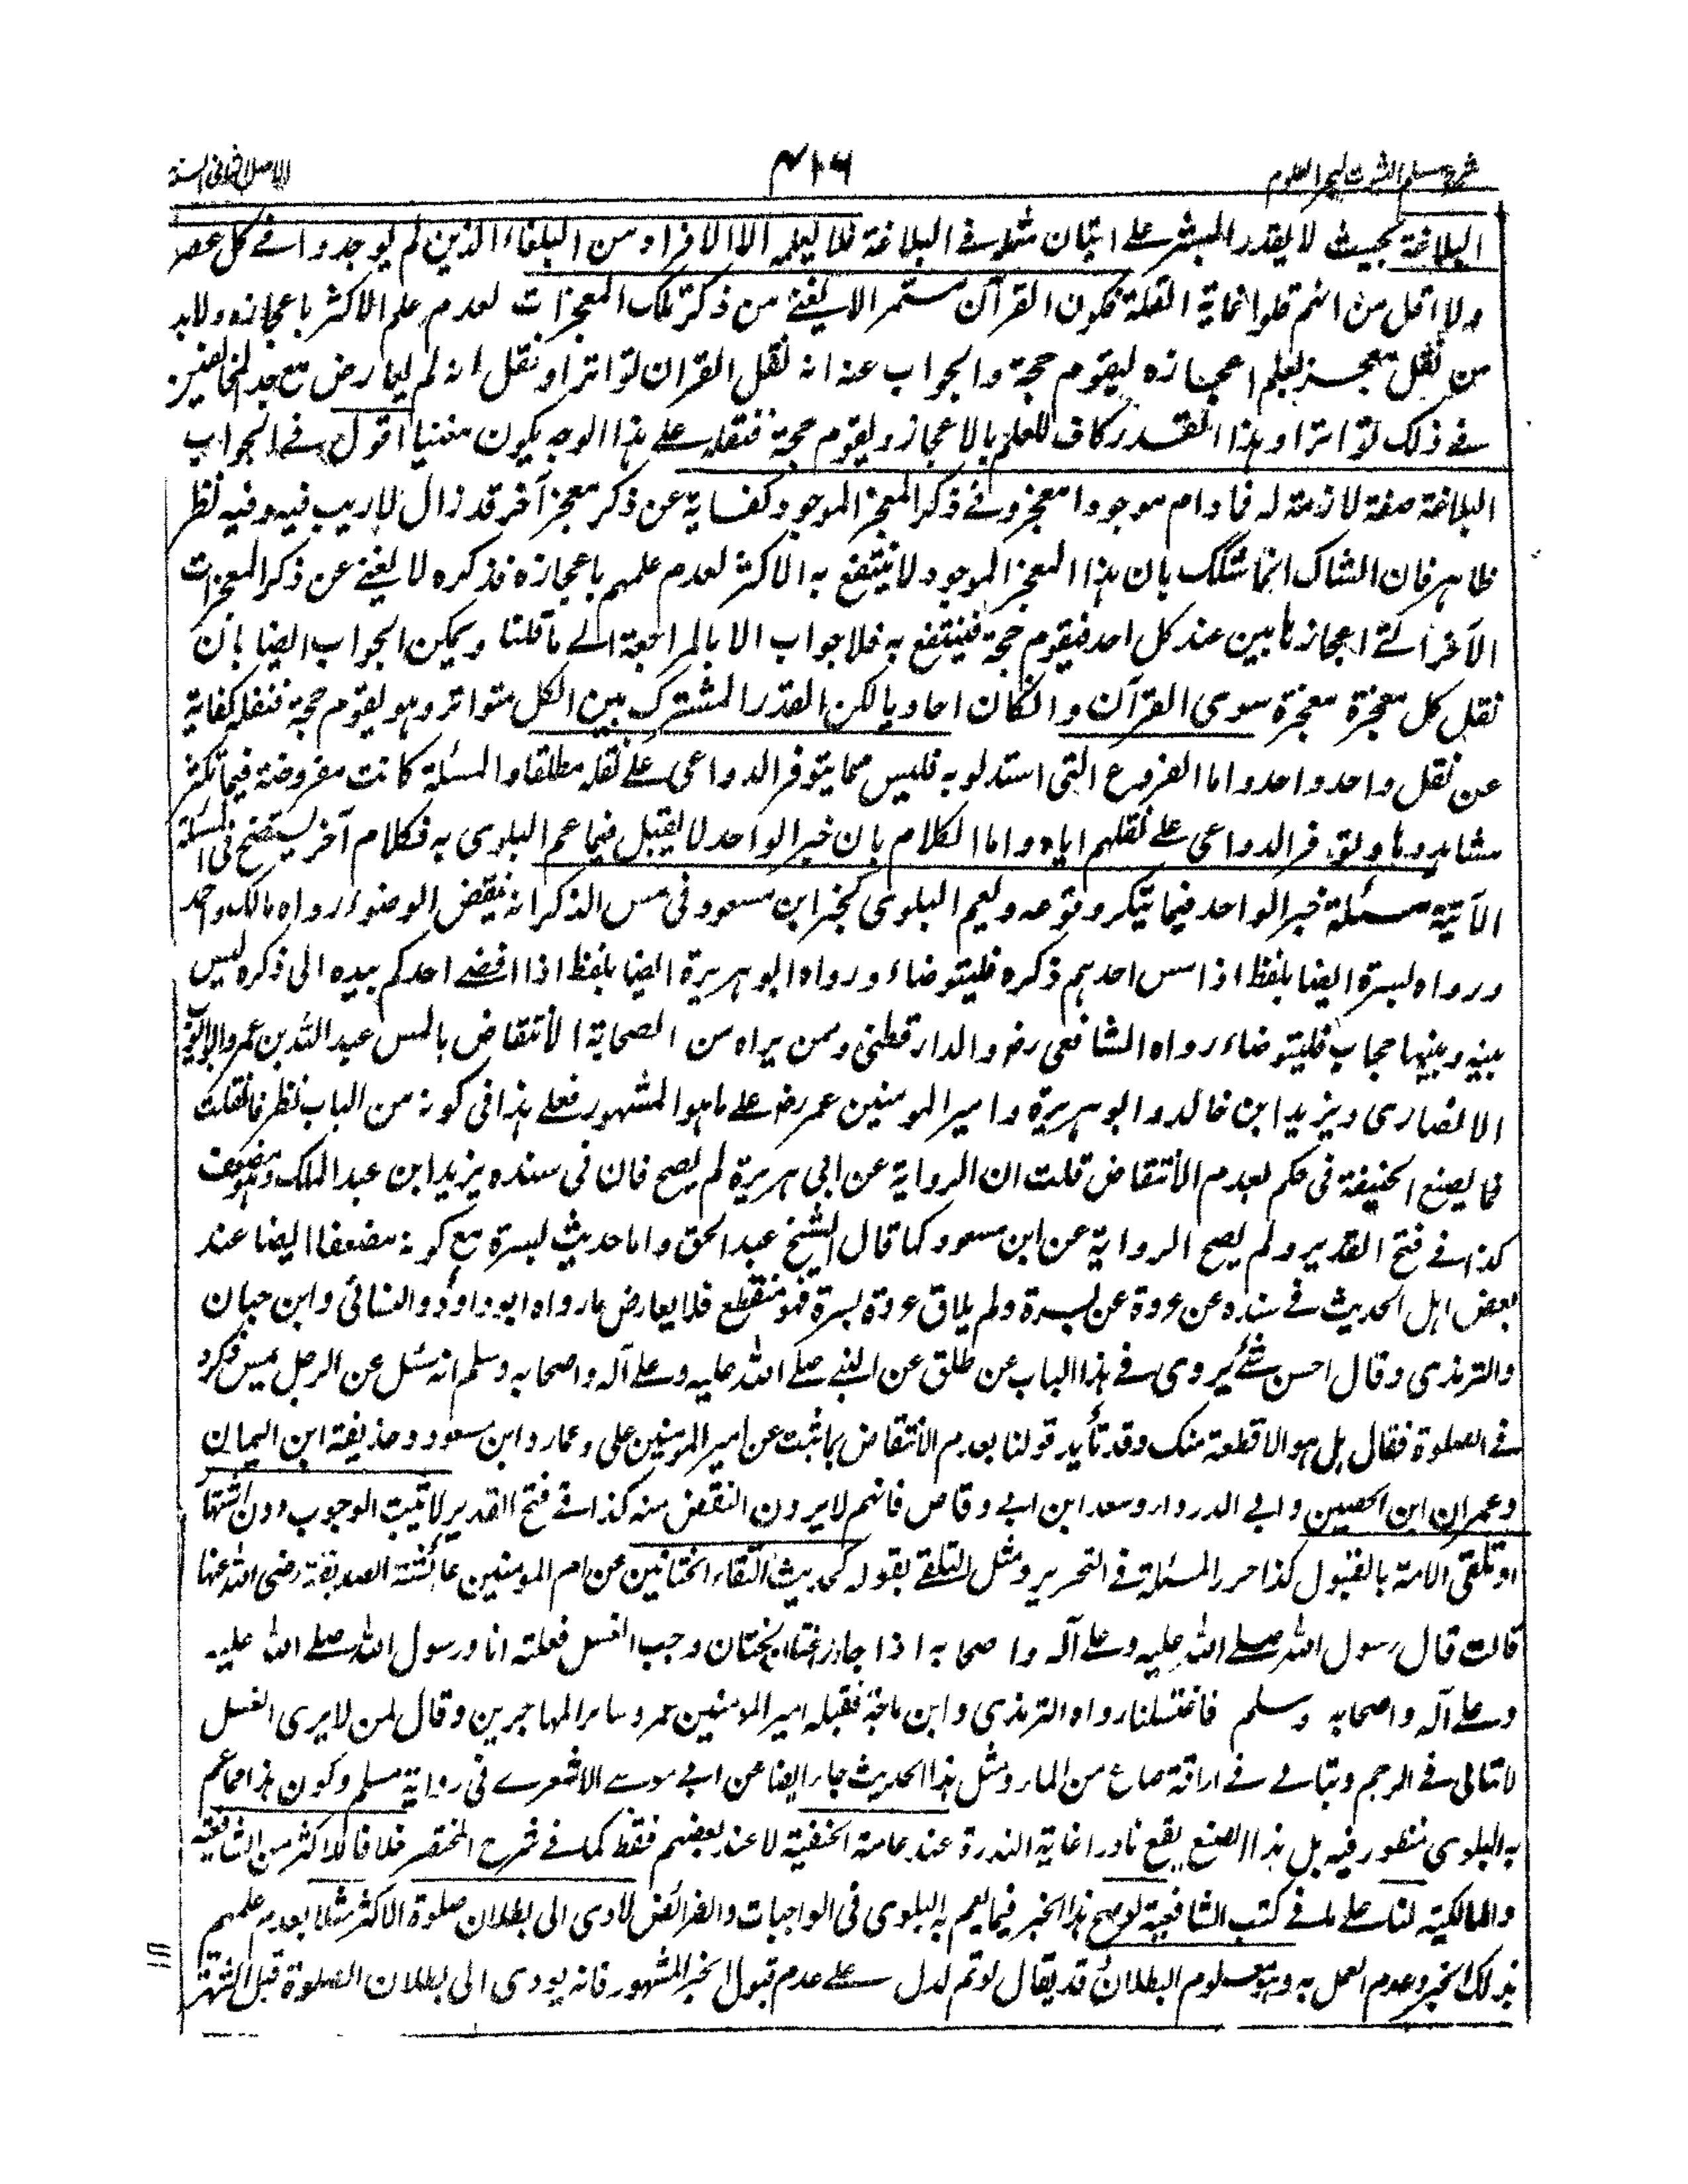 شرح مسلم الثبوت لبحر العلوم
٤١٦
الاصل الثانی السنة
البلاغة بحيث لا يقدر البشر علے اتيان مثله فے البلاغة فلا يعلمه الا الافراد من البلغاء الذين لم يوجدوا فے كل عصر
ولا اقل من انهم قلوا غاية القلة فكون القرآن مستمرا لا يغنے من ذكر تلك المعجزات لعدم علم الاكثر باعجازه ولابد
من نقل معجز يعلم اعجازه ليقوم حجة والجواب عنه انه نقل القران تواترا ونقل انه لم يعارض مع جد المخالفين
فے ذلك تواترا وهذا القدر كاف للعلم بالاعجاز ويقوم حجة فنقله علے هذا الوجه يكون مغنيا اقول فے الجواب
البلاغة صفة لازمة له فما دام موجودا معجز وفے ذكر المعجز الموجود كفاية عن ذكر معجز آخر قد زال لا ريب فيه وفيه نظر
ظاهر فان الشاك انما شكك بان هذا المعجز الموجود لا ينتفع به الاكثر لعدم علمهم باعجازه فذكره لا يغنے عن ذكر المعجزات
الآخر التے اعجازها بين عند كل احد فيقوم حجة فينتفع به فلا جواب الا بالمراجعة الے ما قلنا ويمكن الجواب ايضا بان
نقل كل معجزة معجزة سوی القرآن وان كان احاديا لكن القدر المشترك بين الكل متواتر وهو يقوم حجة فنقله كفاية
عن نقل واحد واحد واما الفروع التی استدلو به فليس مما يتوفر الدواعی علے نقله مطلقا والمسئلة كانت مفروضة فيما تكثر
مشاهدوها وتوفر الدواعی علے نقلهم اياه واما الكلام بان خبر الواحد لا يقبل فيما عم البلوی به فكلام آخر سيتضح فی المسئلة
الآتية مسئلة خبر الواحد فيما يتكرر وقوعه ويعم البلوی كخبر ابن مسعود فی مس الذكر انه ينقض الوضوء رواه مالك واحمد
ورواه بسرة ايضا بلفظ اذا مس احدهم ذكره فليتوضاء ورواه ابو هريرة ايضا بلفظ اذا افضے احدكم بيده الی ذكره ليس
بينه وبينها حجاب فليتوضاء رواه الشافعی رض والدارقطنی وممن يراه من الصحابة الانتقاض بالمس عبد الله بن عمر وابو ايوب
الانصاری ويزيد ابن خالد وابو هريرة وامير المومنين عمر رض علے ما هو المشهور فعلے هذا فی كونه من الباب نظر فان قلت
فما يصنع الحنيفة فی حكم بعدم الانتقاض قلت ان الرواية عن ابی هريرة لم يصح فان فی سنده يزيد ابن عبد الملك وهو ضعيف
كذا فے فتح القدير ولم يصح الرواية عن ابن مسعود كما قال الشيخ عبد الحق واما حديث بسرة مع كونه مضعفا ايضا عند
بعض اهل الحديث فے سنده عن عروة عن بسرة ولم يلاق عروة بسرة فهو منقطع فلا يعارض ما رواه ابو داود والنسائی وابن حبان
والترمذی وقال احسن شئ يروی فے هذا الباب عن طلق عن النبے صلے الله عليه وعلے آله واصحابه وسلم انه سئل عن الرجل يمس ذكره
فے الصلوة فقال بل هو الا قطعة منك وقد تأيد قولنا بعدم الانتقاض بما ثبت عن امير المومنين علی وعمار وابن مسعود وحذيفة ابن اليمان
وعمران ابن الحصين وابی الدرداء وسعد ابن ابے وقاص فانهم لا يرون النقض منه كذا فے فتح القدير لا يثبت الوجوب دون اشتهار
او تلقی الامة بالقبول كذا حرر المسئلة فے التحرير ومثل التلقے بقوله كحديث التقاء الختانين عن ام المومنين عائشة الصديقة رضی الله عنها
قالت قال رسول الله صلے الله عليه وعلے آله واصحابه اذا جاوز الختان الختان وجب الغسل فعلته انا ورسول الله صلے الله عليه
وعلے آله واصحابه وسلم فاغتسلنا رواه الترمذی وابن ماجة فقبله امير المومنين عمر وسائر المهاجرين وقال لمن لا يری الغسل
لا تبالی فے الرجم وتبالے فے اراقة صاع من الماء ومثل هذا الحديث جاء ايضا عن ابے موسے الاشعرے فی رواية مسلم وكون هذا مما عم
به البلوی منظور فيه بل هذا الصنع يقع نادرا غاية الندرة عند عامة الحنفية لا عند بعضهم فقط كما فے شرح المختصر خلافا للاكثر من الشافعية
والمالكية لنا علے ما فے كتب الشافعية لو صح هذا الخبر فيما يعم به البلوی فی الواجبات والفرائض لادی الی بطلان صلوة الاكثر مثلا بعدم علمهم
بذلك الخبر وعدم العمل به وهو معلوم البطلان قد يقال لو تم لدل علے عدم قبول الخبر المشهور فانه يودی الی بطلان الصلوة قبل الشهرة